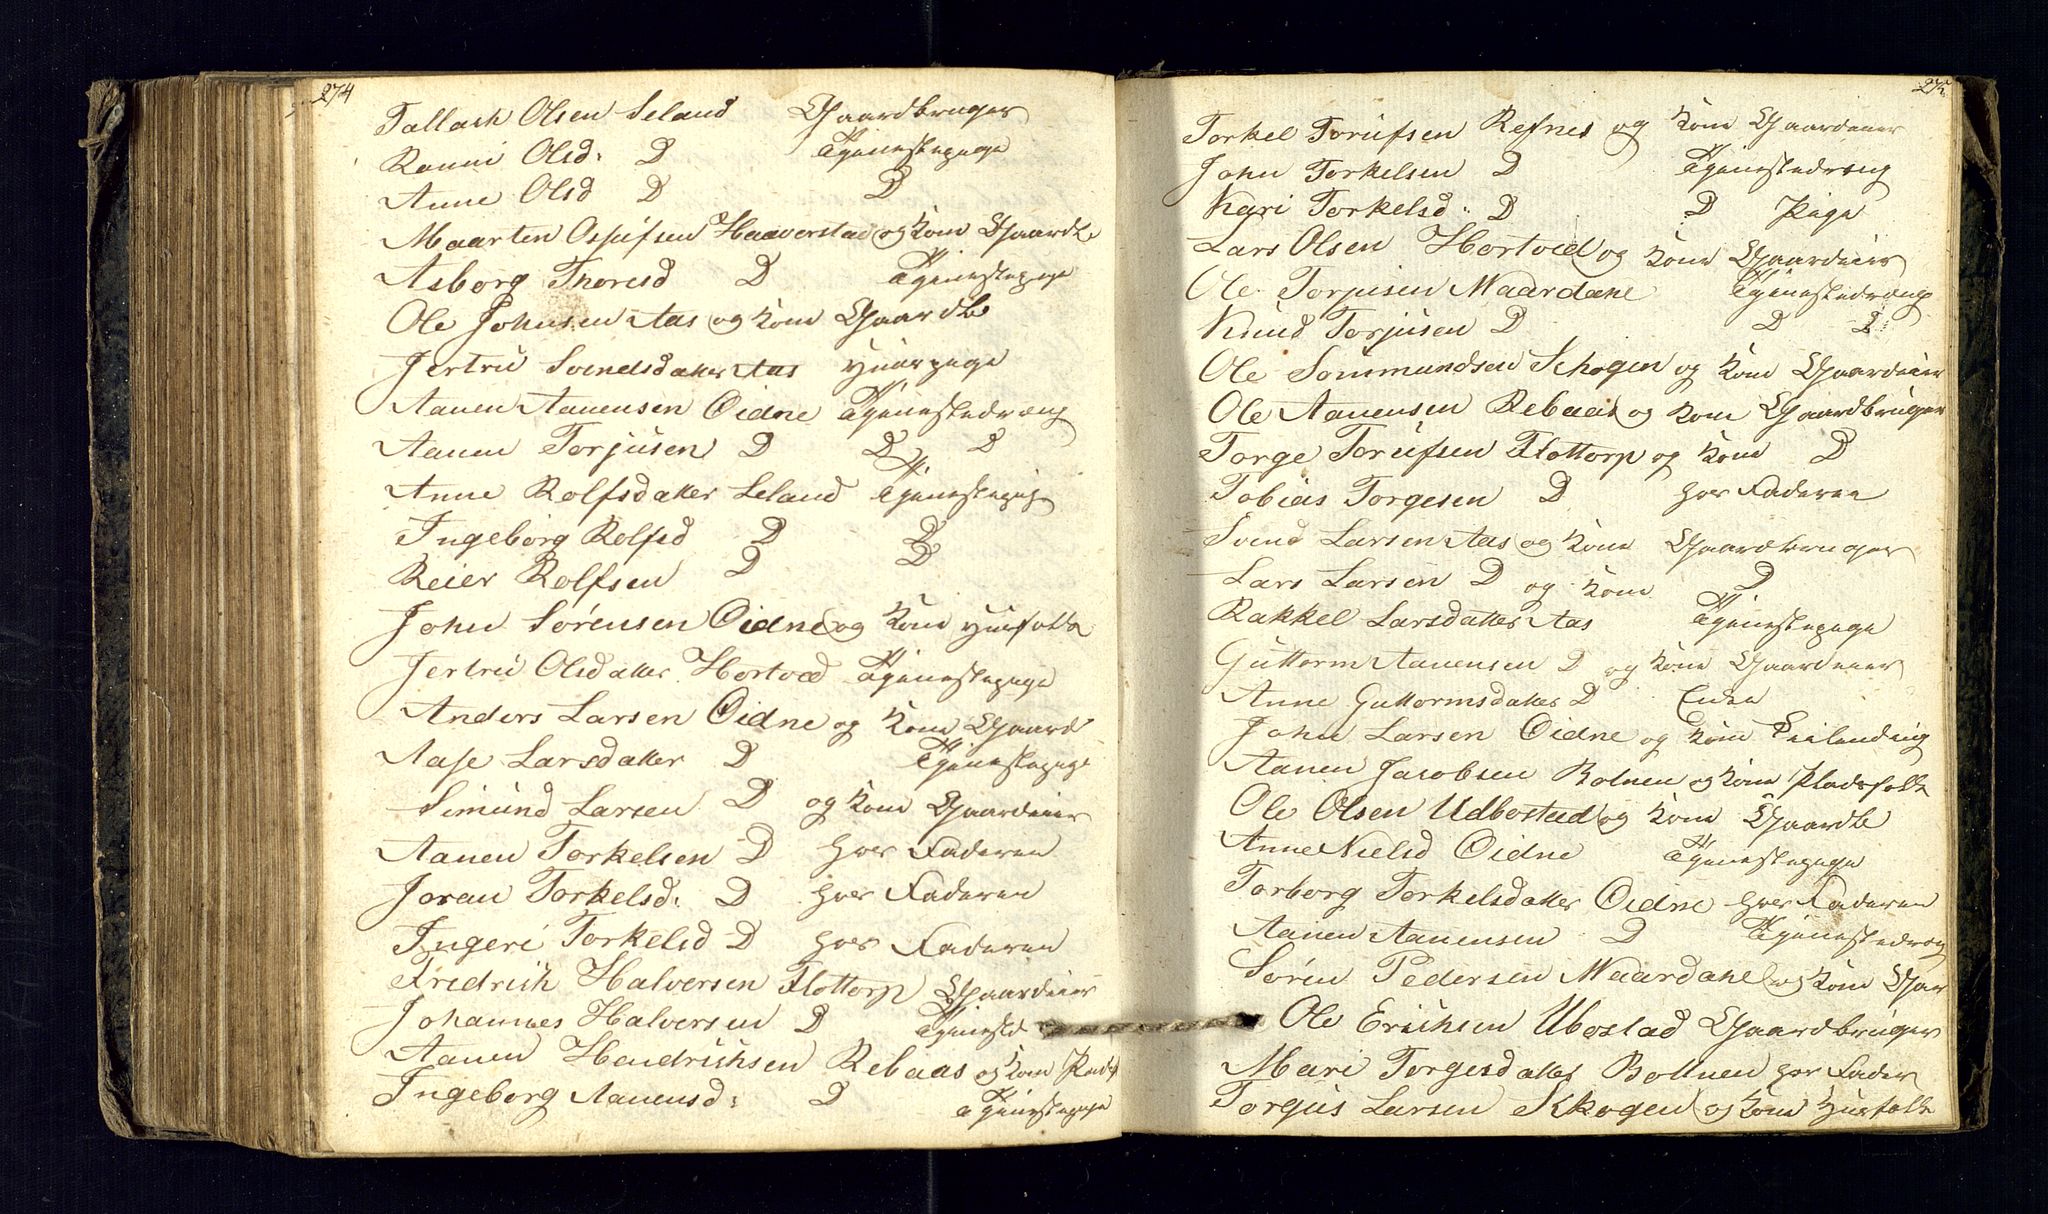 274
Tallak Olsen Seland Gaardbruger
Ronni Olsd: D Tjenestepige
Anne Olsd D D
Maarten Osufsen Haaverstad og Kone Gaardb
Asborg Thoresd D Tjenestepige
Ole Johnsen Aas og Kone Gaardb
Jertru Svendsdatter Aas Huuspige
Aanen Aanensen Oidne Tjenestedræng
Aanen Torjusen D D D
Anne Rolfsdatter Seland Tjenestepige
Ingeborg Rolfsd D D
Reier Rolfsen D D
John Sørensen Oidne og Kone Huusfolk
Jertru Olsdatter Hortved Tjenestepige
Anders Larsen Oidne og Kone Gaardb
Aase Larsdatter D Tjenestepige
Simund Larsen D og Kone Gaardeier
Aanen Torkelsen D hos Faderen
Joran Torkelsd: D hos Faderen
Ingeri Torkelsd D hos Faderen
Fredrich Halversen Flottorp Gaardeier
Johannes Halversen D Tjenested
Aanen Hendrichsen Rebaas og Kone Pladsf
Ingeborg Aanensd: D Tjenestepige
275
Torkel Torufsen Refnes og Kone Gaardeier
John Torkelsen D Tjenestedræng
Kari Torkelsd: D D Pige
Lars Olsen Hortved og Kone Gaardeier
Ole Torjusen Maardahl Tjenestedræng
Knud Torjusen D D D
Ole Sommundsen Schogen og Kone Gaardeier
Ole Aanensen Rebaas og Kone Gaardbruger
Torge Torufsen Flottorp og Kone D
Tobias Torgesen D hos Faderen
Svend Larsen Aas og Kone Gaardbruger
Lars Larsen D og Kone D
Rakkel Larsdatter Aas Tjenestepige
Guttorm Aanensen D og Kone Gaardeier
Anne Guttormsdatter D Enke
John Larsen Oidne og Kone
Aanen Jacobsen Bolnen og Kone Pladsfolk
Ole Olsen Udbostad og Kone Gaardb
Anne Nielsd Oidne Tjenestepige
Torborg Torkelsdatter Oidne hos Faderen
Aanen Aanensen D Tjenestedræng
Søren Pedersen Maardahl og Kone Gaar
Ole Erichsen Ubostad Gaardbruger
Mari Torgesdatter Bollnen hos Fader
Torgus Larsen Skogen og Kone Huusfolk